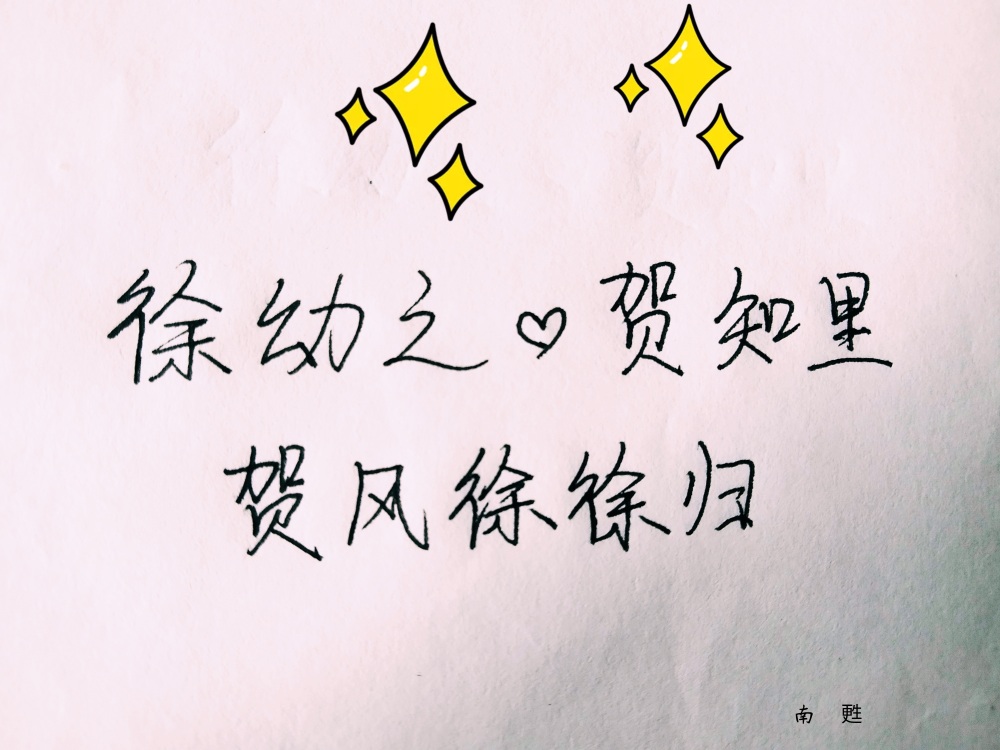 徐幼之♡贺知里
贺风徐徐归
南 甦